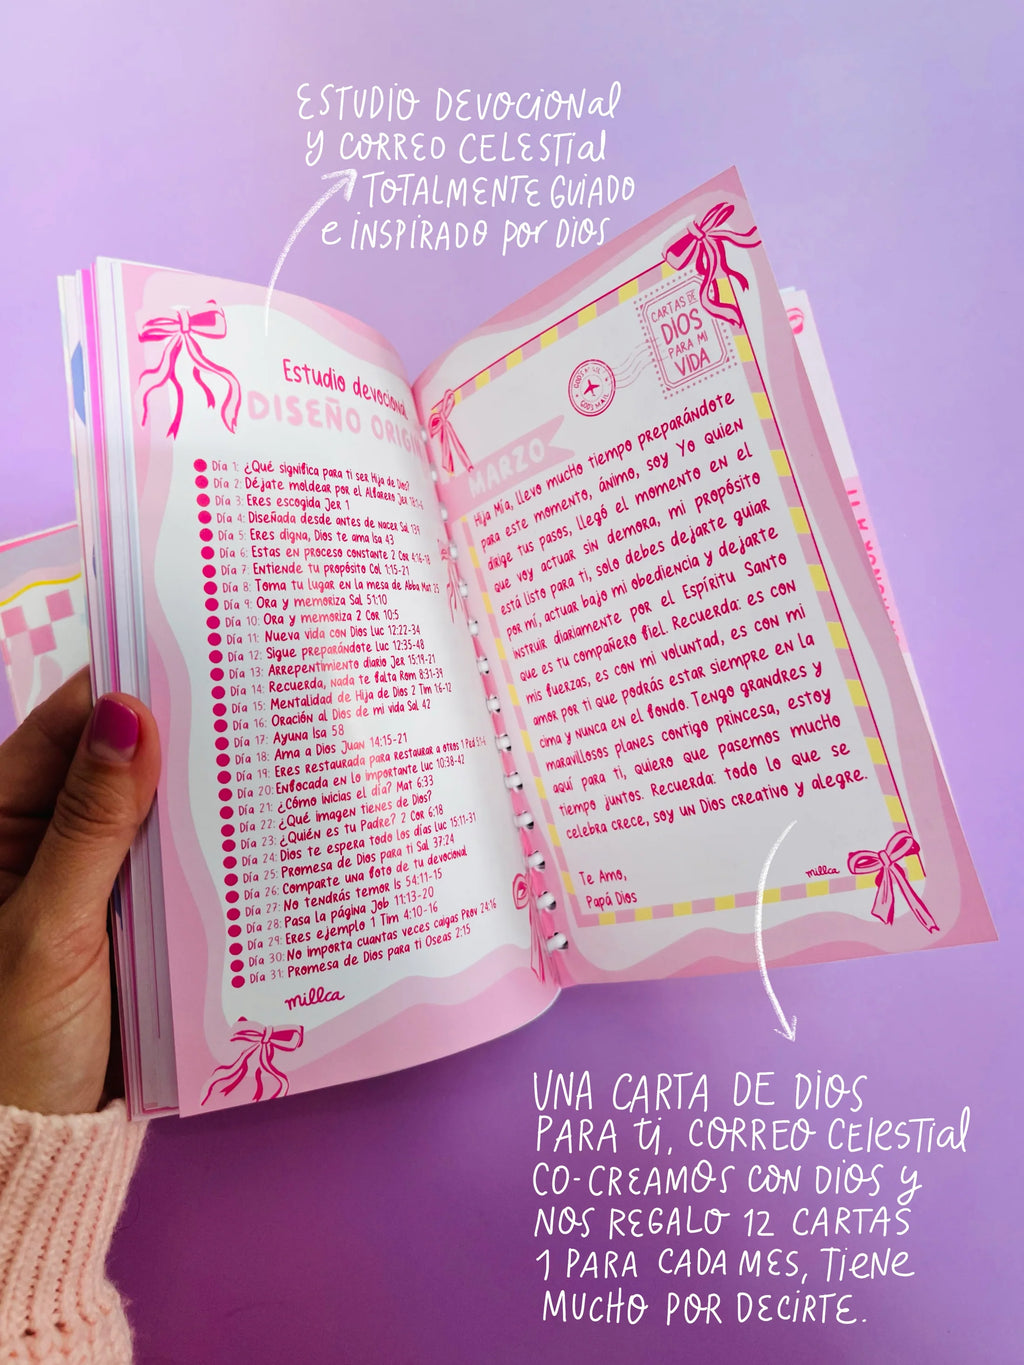 ESTUDIO DEVOCIONAL
Y CORREO CELESTIAL
TOTALMENTE GUIADO
e INSPIRADO POR DIOS
Estudio devocional
DISEÑO ORIGIN
Día 1: ¿Qué significa para ti ser Hija de Dios?
Día 2: Déjate moldear por el Alfarero Jer 18:1-6
Día 3: Eres escogida Jer 1
Día 4: Diseñada desde antes de nacer Sal 139
Día 5: Eres digna, Dios te ama Isa 43
Día 6: Estas en proceso constante 2 Cor 4:16-18
Día 7: Entiende tu propósito Col 1:15-21
Día 8: Toma tu lugar en la mesa de Abba Mat 25
Día 9: Ora y memoriza Sal 51:10
Día 10: Ora y memoriza 2 Cor 10:5
Día 11: Nueva vida con Dios Luc 12:22-34
Día 12: Sigue preparándote Luc 12:35-48
Día 13: Arrepentimiento diario Jer 15:19-21
Día 14: Recuerda, nada te falta Rom 8:31-39
Día 15: Mentalidad de Hija de Dios 2 Tim 1:6-12
Día 16: Oración al Dios de mi vida Sal 42
Día 17: Ayuna Isa 58
Día 18: Ama a Dios Juan 14:15-21
Día 19: Eres restaurada para restaurar a otros 1 Ped 5:1-6
Día 20: Enfocada en lo importante Luc 10:38-42
Día 21: ¿Cómo inicias el día? Mat 6:33
Día 22: ¿Qué imagen tienes de Dios?
Día 23: ¿Quién es tu Padre? 2 Cor 6:18
Día 24: Dios te espera todo los días Luc 15:11-31
Día 25: Promesa de Dios para ti Sal 37:24
Día 26: Comparte una foto de tu devocional
Día 27: No tendrás temor Is 54:11-15
Día 28: Pasa la página Job 11:13-20
Día 29: Eres ejemplo 1 Tim 4:10-16
Día 30: No importa cuantas veces caigas Prov 24:16
Día 31: Promesa de Dios para ti Oseas 2:15
millca
CARTAS DE
DIOS
PARA MI
VIDA
GOD'S MAIL
GOD'S MAIL
MARZO
Hija Mía, llevo mucho tiempo preparándote
para este momento, ánimo, soy Yo quien
dirige tus pasos, llegó el momento en el
que voy actuar sin demora, mi propósito
está listo para ti, solo debes dejarte guiar
por mí, actuar bajo mi obediencia y dejarte
instruir diariamente por el Espíritu Santo
que es tu compañero fiel. Recuerda: es con
mis fuerzas, es con mi voluntad, es con mi
amor por ti que podrás estar siempre en la
cima y nunca en el fondo. Tengo grandres y
maravillosos planes contigo princesa, estoy
aquí para ti, quiero que pasemos mucho
tiempo juntos. Recuerda: todo lo que se
celebra crece, soy un Dios creativo y alegre.
Te Amo,
Papá Dios
millca
UNA CARTA DE DIOS
PARA ti, CORREO CELESTIAL
CO-CREAMOS CON DIOS Y
NOS REGALO 12 CARTAS
1 PARA CADA MES, TIENE
MUCHO POR DECIRTE.